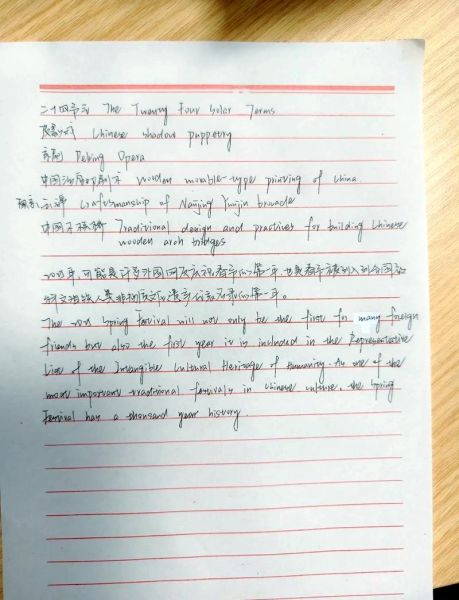 二十四节气 The Twenty Four Solar Terms
皮影戏 Chinese shadow puppetry
京剧 Peking Opera
中国活字印刷术 Wooden movable-type printing of China
南京云锦 Craftsmanship of Nanjing Yunjin brocade
中国木拱桥 Traditional design and practices for building Chinese
wooden arch bridges
2025年,可能是许多外国网友庆祝春节的第一年,也是春节被列入联合国
人类非物质文化遗产代表名录的第一年。
The 2025 Spring Festival will not only be the first for many foreign
friends but also the first year it is included in the Representative
List of the Intangible Cultural Heritage of Humanity. As one of the
most important traditional festivals in Chinese culture, the Spring
Festival has a thousand year history